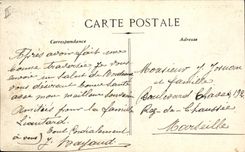 CARTE POSTALE
Correspondance
Adresse
Après avoir fait une
bonne traversée je vous
envoie un salut de Bordeaux
vous désirant bonne santé
Amitiés pour la famille
Lieutard
Tout Cordialement
à vous J.
Monsieur J.
et famille
Boulevard Chave 192
Rez-de-Chaussée
Marseille